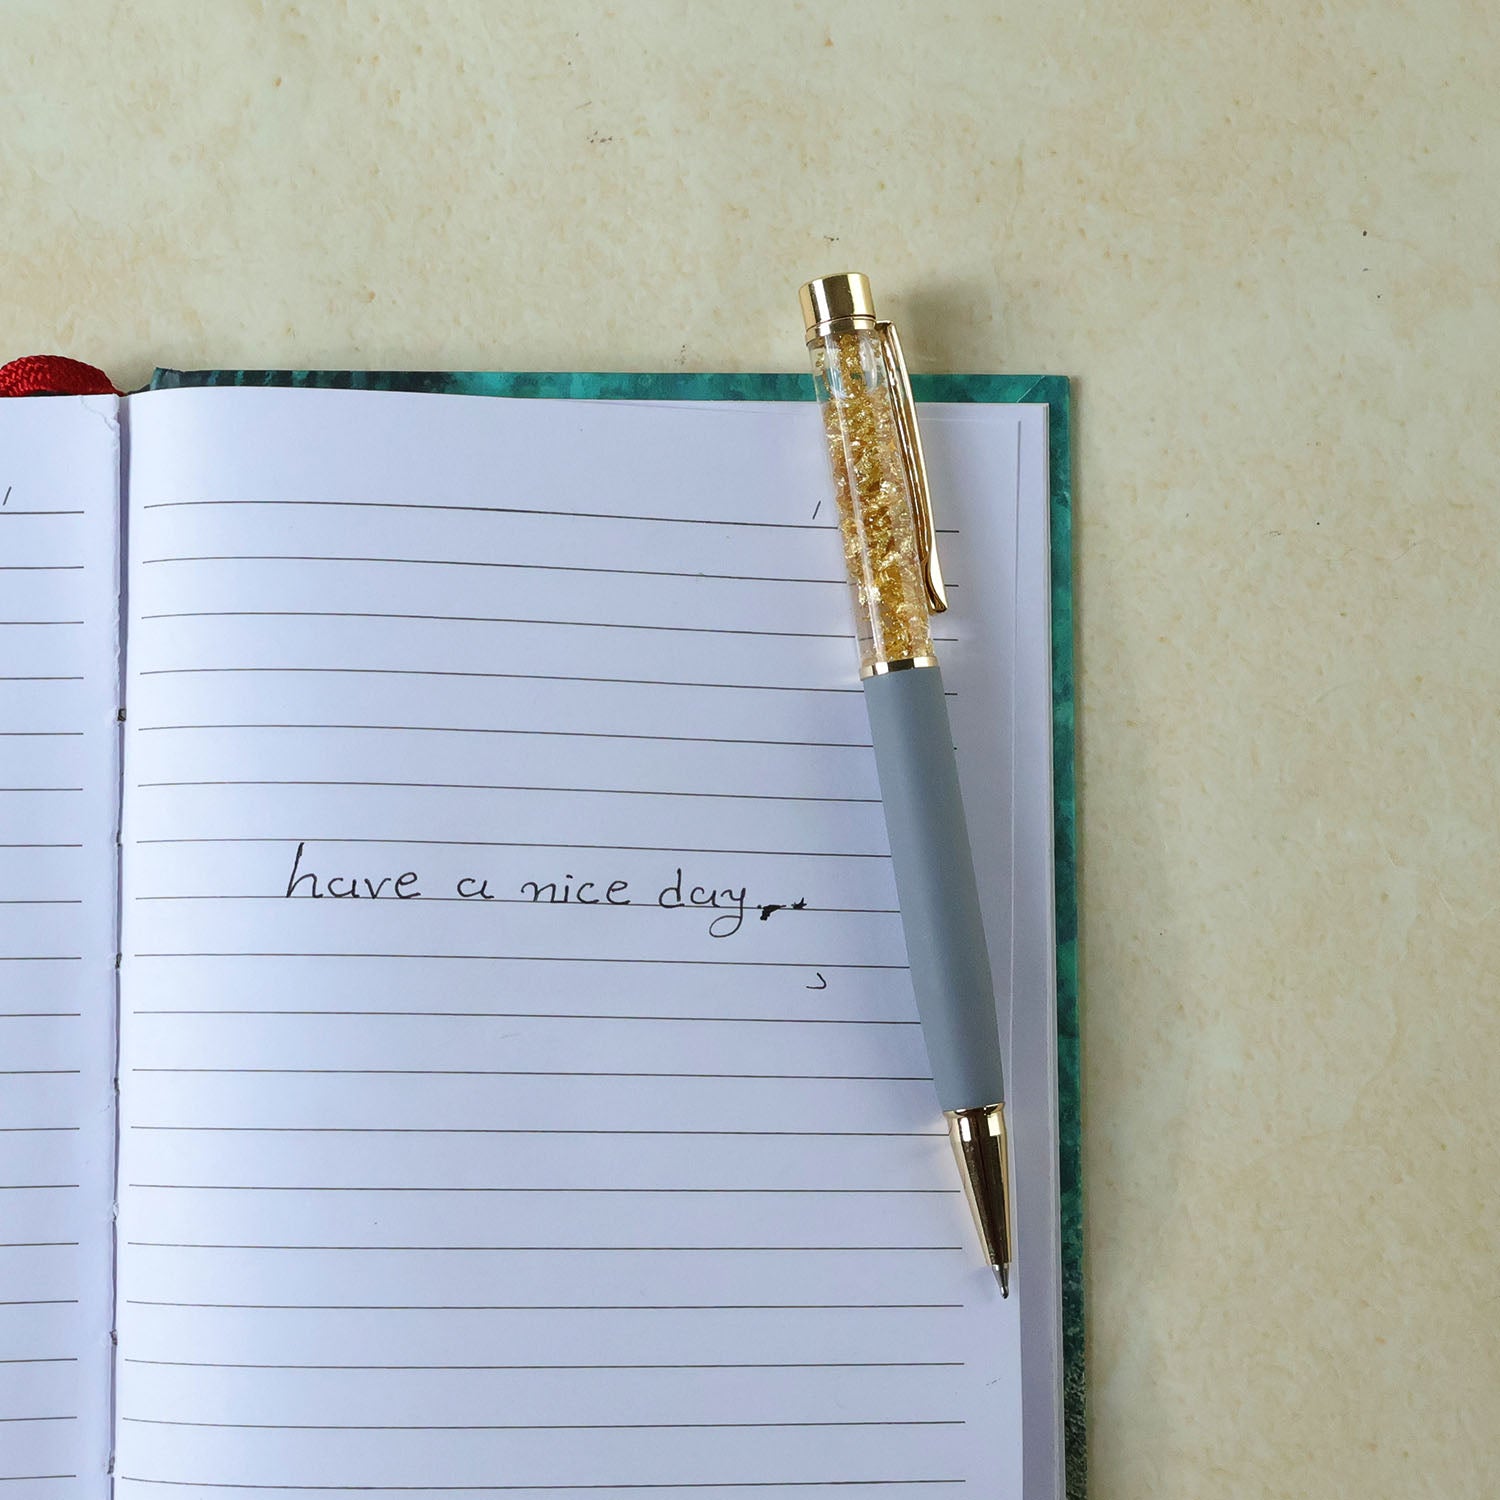 have a nice day...